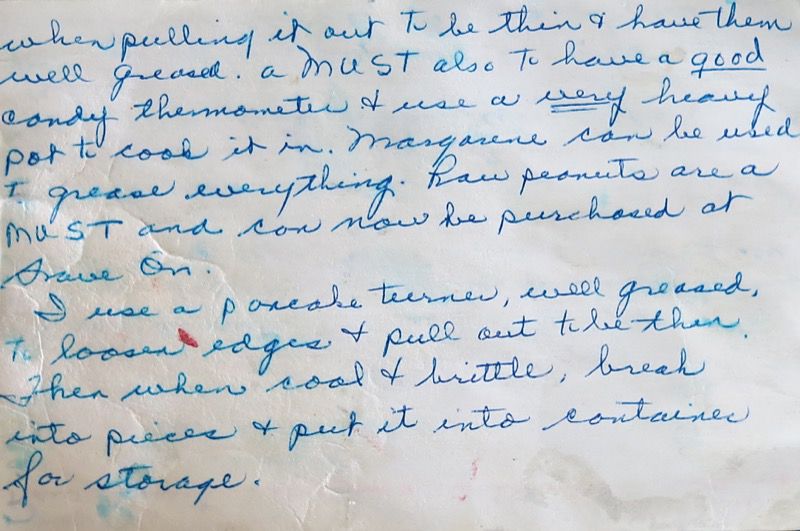 when pulling it out to be thin & have them
well greased. a MUST also to have a good
candy thermometer & use a very heavy
pot to cook it in. Margarene can be used
to grease everything. Raw peanuts are a
MUST and can now be purchased at
Save On.
I use a pancake turner, well greased,
to loosen edges & pull out to be thin.
Then when cool & brittle, break
into pieces & put it into container
for storage.